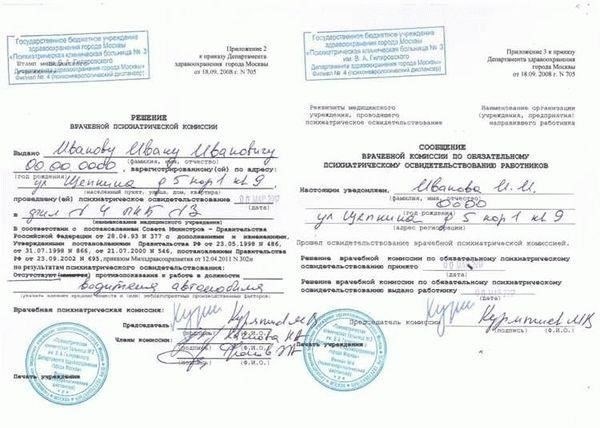 Государственное бюджетное учреждение
здравоохранения города Москвы
«Психиатрическая клиническая больница № 3
им. В. А. Гиляровского
Департамента здравоохранения города Москвы»
Филиал № 4 (психоневрологический диспансер)
Приложение 2
к приказу Департамента
здравоохранения города Москвы
от 18.09. 2008 г. N 705
РЕШЕНИЕ
ВРАЧЕБНОЙ ПСИХИАТРИЧЕСКОЙ КОМИССИИ
Выдано Иванову Ивану Ивановичу
(фамилия, имя, отчество)
00.00 0000, зарегистрированному(ой) по адресу:
(год рождения)
ул Щепкина д 5 кор 1 кв 9
(населенный пункт, улица, дом, квартира)
прошедшему(ей) психиатрическое освидетельствование
(дата)
в фил N 4 ПКБ N3
(наименование медицинского учреждения)
В соответствии с постановлением Совета Министров – Правительства
Российской Федерации от 28.04.93 N 377 с дополнениями и изменениями,
Утвержденными постановлениями Правительства РФ от 23.05.1998 N 486,
от 31.07.1998 N 866, от 21.07.2000 N 546, постановлением Правительства
РФ от 23.09.2002 N 695, приказом Минздравсоцразвития от 12.04.2011 N 302н
по результатам психиатрического освидетельствования:
Отсутствуют противопоказания к работе в должности
водителя автомобиля
Врачебная психиатрическая комиссия:
Председатель
(подпись) (Ф.И.О.)
Члены комиссии:
(подпись) (Ф.И.О.)
(подпись) (Ф.И.О.)
Печать учреждения
Государственное бюджетное учреждение
здравоохранения города Москвы
«Психиатрическая клиническая больница № 3
им. В. А. Гиляровского
Департамента здравоохранения города Москвы»
Филиал № 4 (психоневрологический диспансер)
Приложение 3 к приказу
Департамента здравоохранения
города Москвы
от 18.09. 2008 г. N 705
Реквизиты медицинского
учреждения, проводящего
психиатрическое освидетельствование
Наименование организации
(учреждения, предприятия)
направившего работника
СООБЩЕНИЕ
ВРАЧЕБНОЙ КОМИССИИ ПО ОБЯЗАТЕЛЬНОМУ
ПСИХИАТРИЧЕСКОМУ ОСВИДЕТЕЛЬСТВОВАНИЮ РАБОТНИКОВ
Настоящим уведомляем, Иванова И. И,
(фамилия, имя, отчество)
0000
(год рождения)
ул Щепкина д 5 кор 1 кв 9
(адрес регистрации)
Прошел освидетельствование врачебной психиатрической комиссией.
Решение врачебной комиссии по обязательному психиатрическому
освидетельствованию принято
(дата)
Решение врачебной комиссии по обязательному психиатрическому
освидетельствованию выдано работнику
(дата)
Председатель комиссии
(подпись) (Ф.И.О.)
Печать учреждения